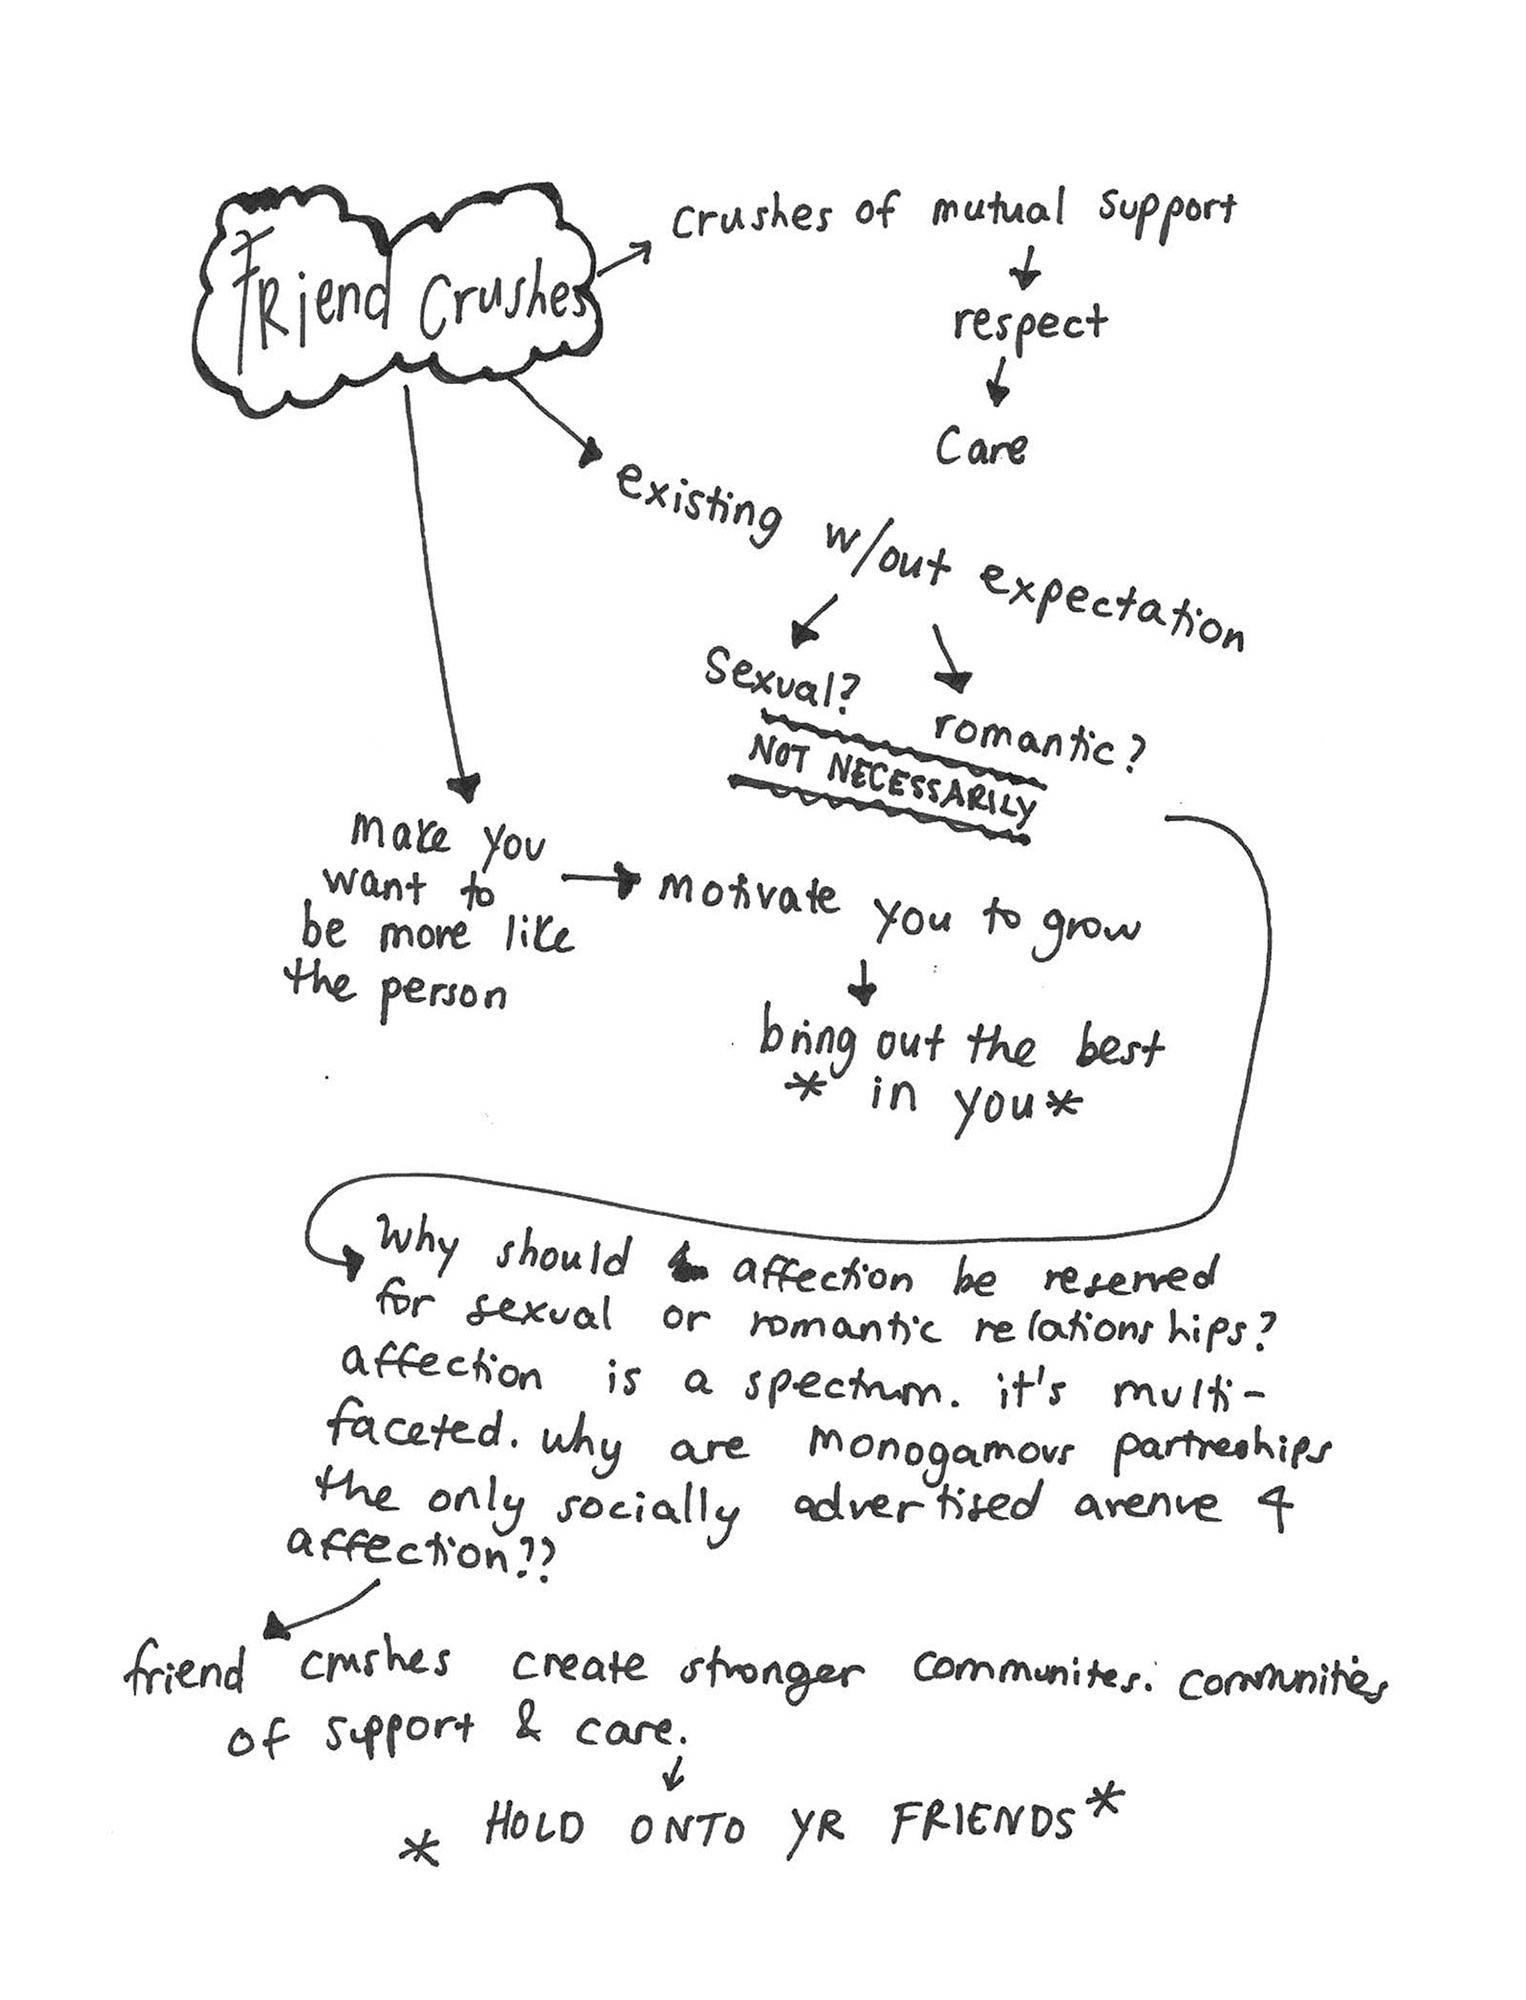 Friend Crushes
crushes of mutual support
respect
Care
existing w/out expectation
Sexual?
romantic?
NOT NECESSARILY
make you
want to
be more like
the person
motivate you to grow
bring out the best
* in you *
Why should affection be reserved
for sexual or romantic relationships?
affection is a spectrum. it's multi-
faceted. why are monogamous partnerships
the only socially advertised avenue 4
affection??
friend crushes create stronger communites. communities
of support & care.
* HOLD ONTO YR FRIENDS *